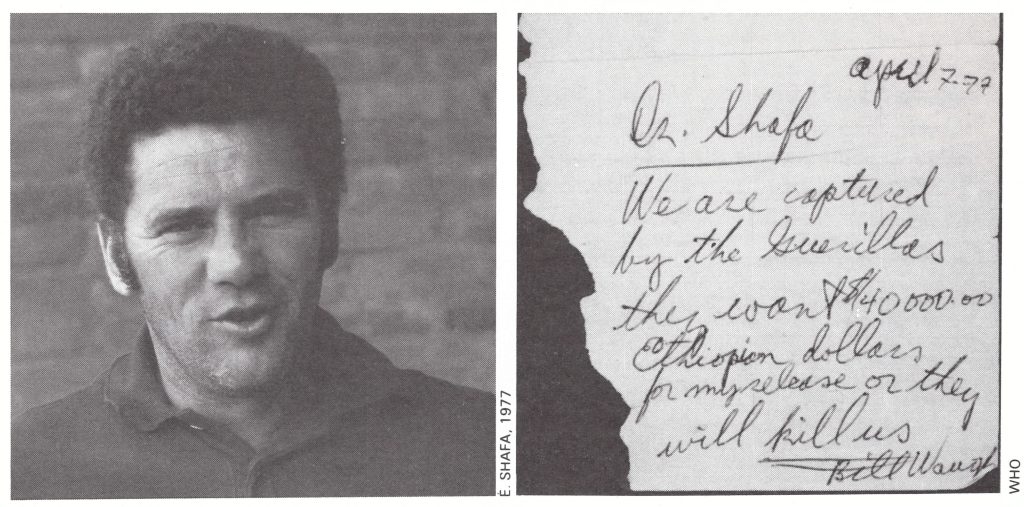 April 7-77
Dr. Shafa
We are captured
by the Guerillas
they want $40000.00
Ethiopian dollars
for my release or they
will kill us
Bill
É. SHAFA, 1977
WHO